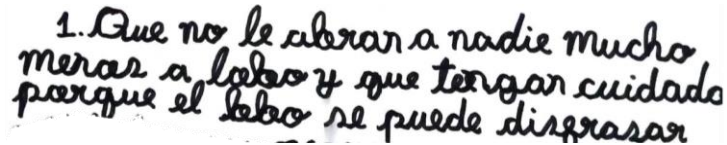 1. Que no le abran a nadie mucho
menos a lobo y que tengan cuidado
porque el lobo se puede disfrasar